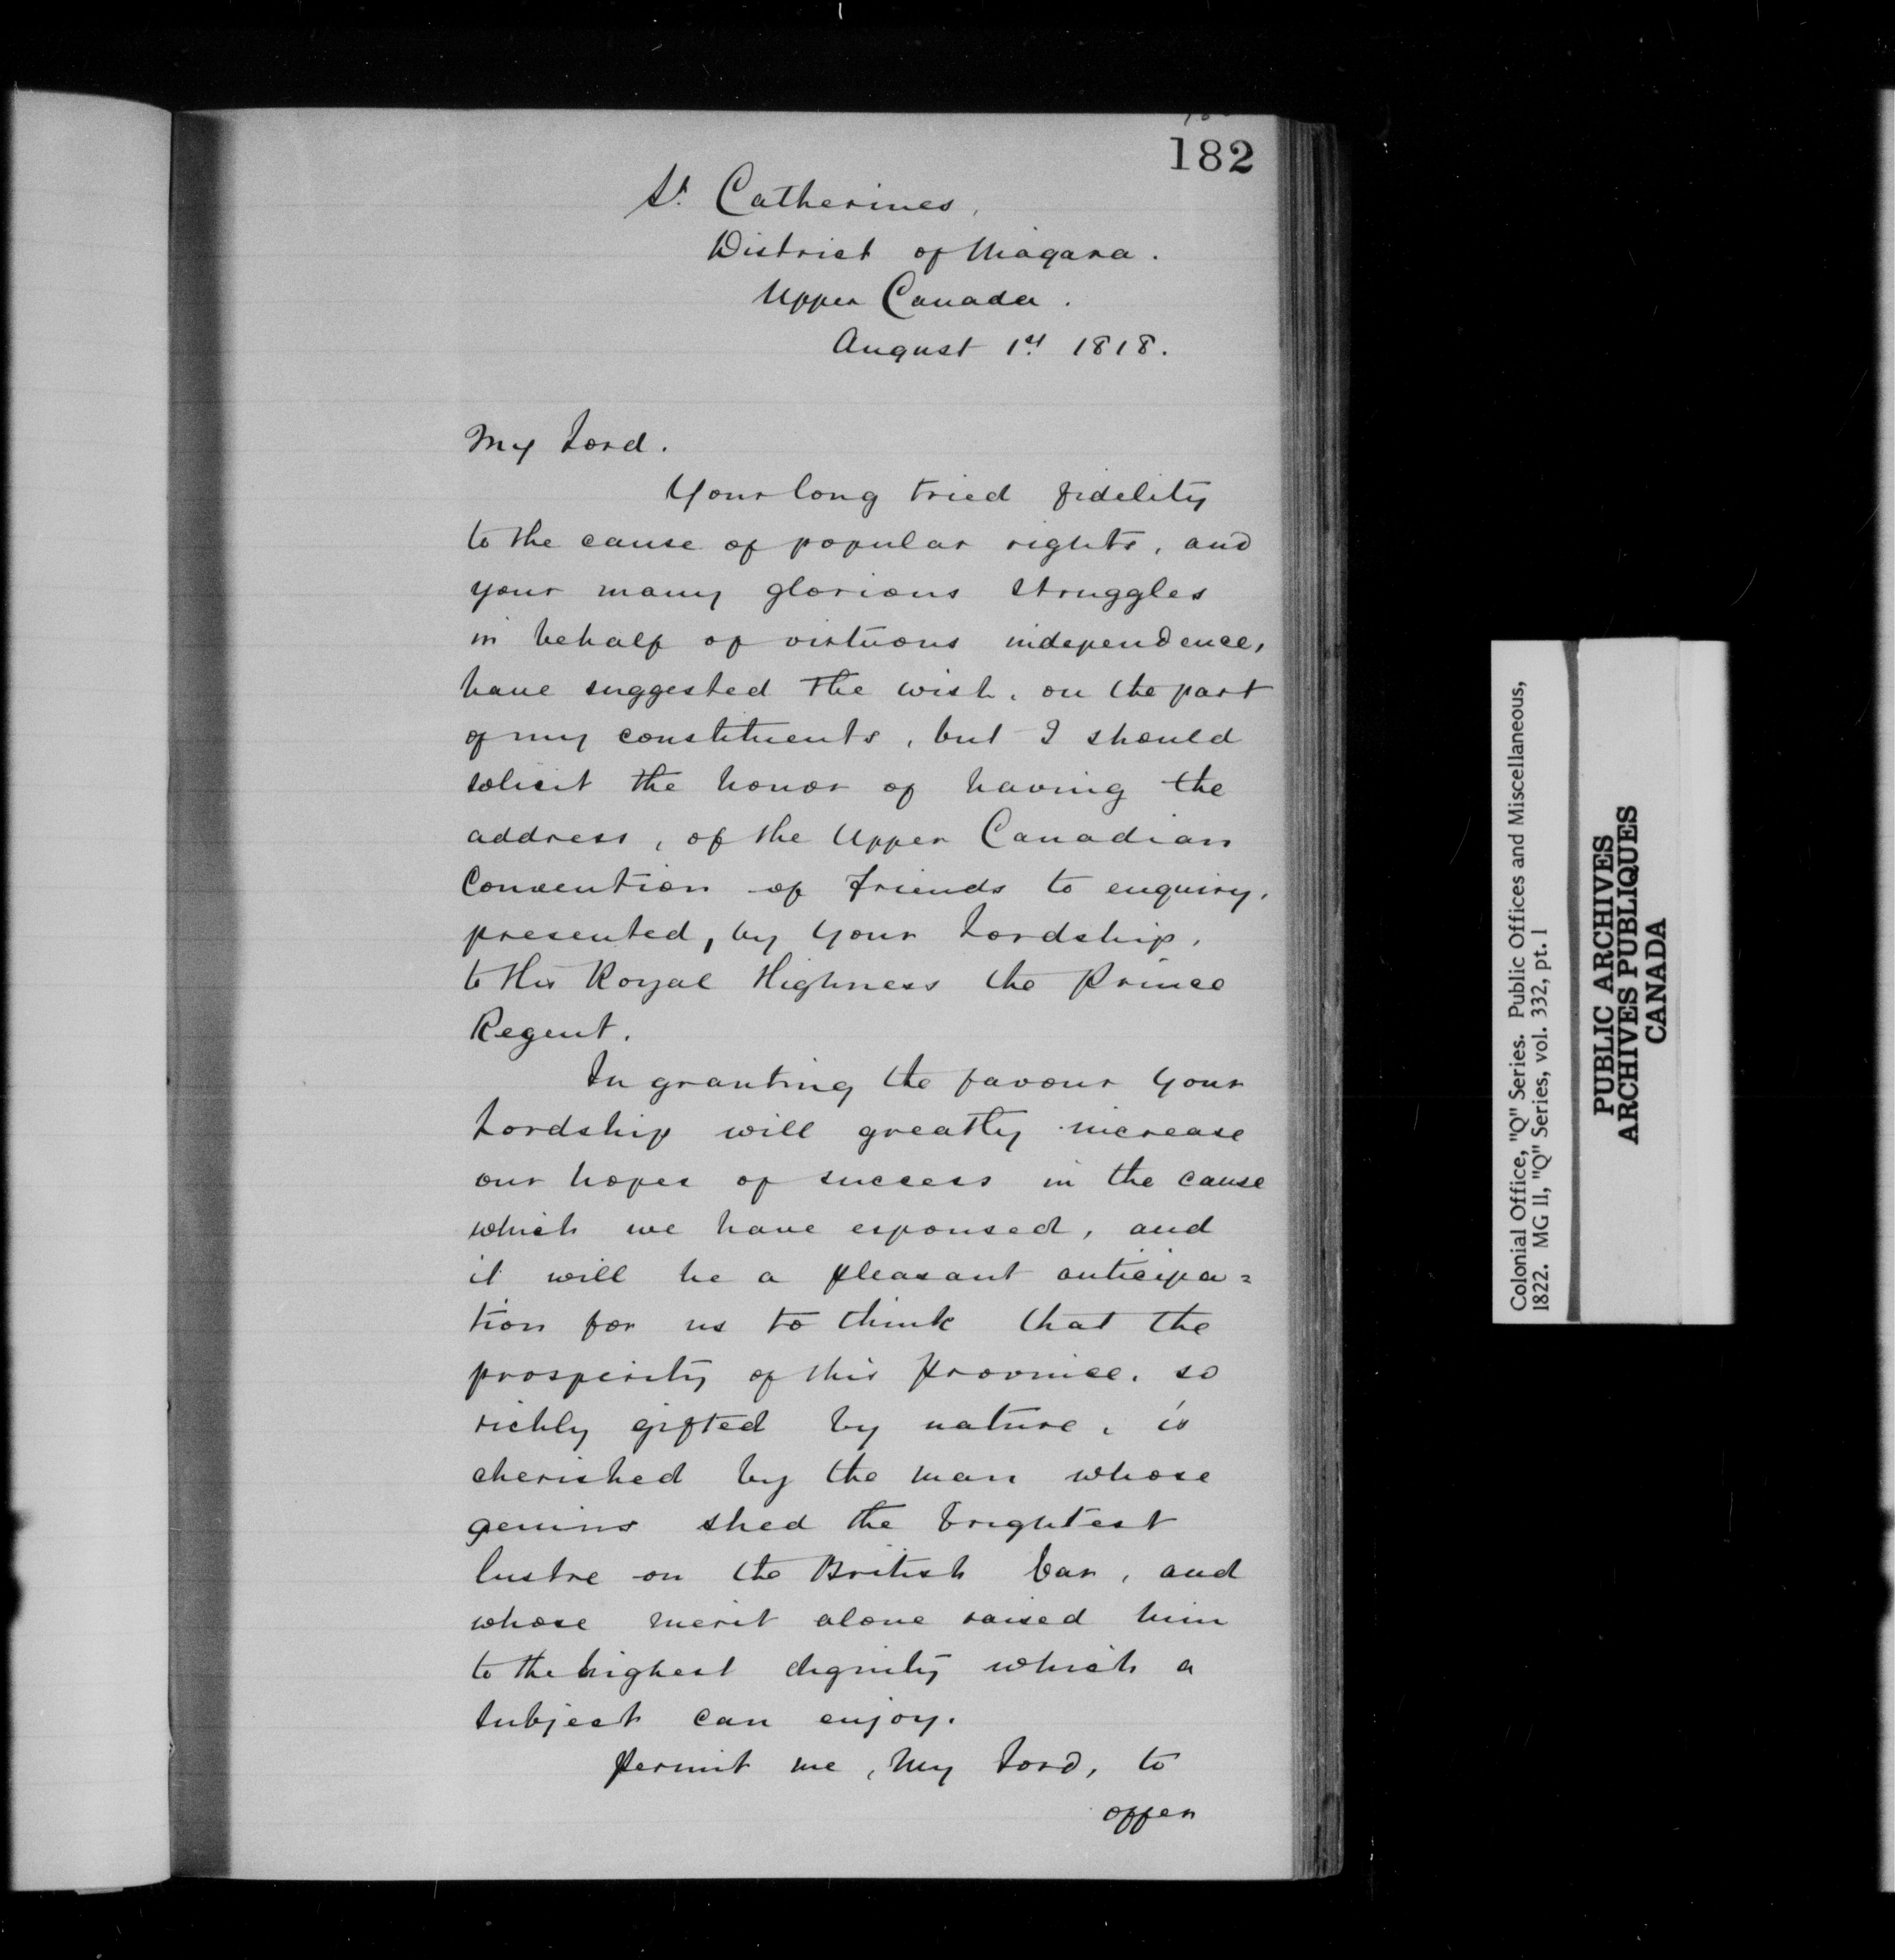 182
St. Catherines,
District of Niagara.
Upper Canada.
August 1st 1818.
My Lord.
Your long tried fidelity
to the cause of popular rights, and
your many glorious struggles
in behalf of virtuous independence,
have suggested the wish, on the part
of my constituents, but I should
solicit the honor of having the
address, of the Upper Canadian
Convention of friends to enquiry,
presented, by Your Lordship,
to His Royal Highness the Prince
Regent.
In granting the favour Your
Lordship will greatly increase
our hopes of success in the cause
which we have espoused, and
it will be a pleasant anticipa=
tion for us to think that the
prosperity of this Province, so
richly gifted by nature, is
cherished by the man whose
genius shed the brightest
lustre on the British bar, and
whose merit alone raised him
to the highest dignity which a
Subject can enjoy.
Permit me, My Lord, to
offer
Colonial Office, "Q" Series. Public Offices and Miscellaneous,
1822. MG 11, "Q" Series, vol. 332, pt. 1
PUBLIC ARCHIVES
ARCHIVES PUBLIQUES
CANADA